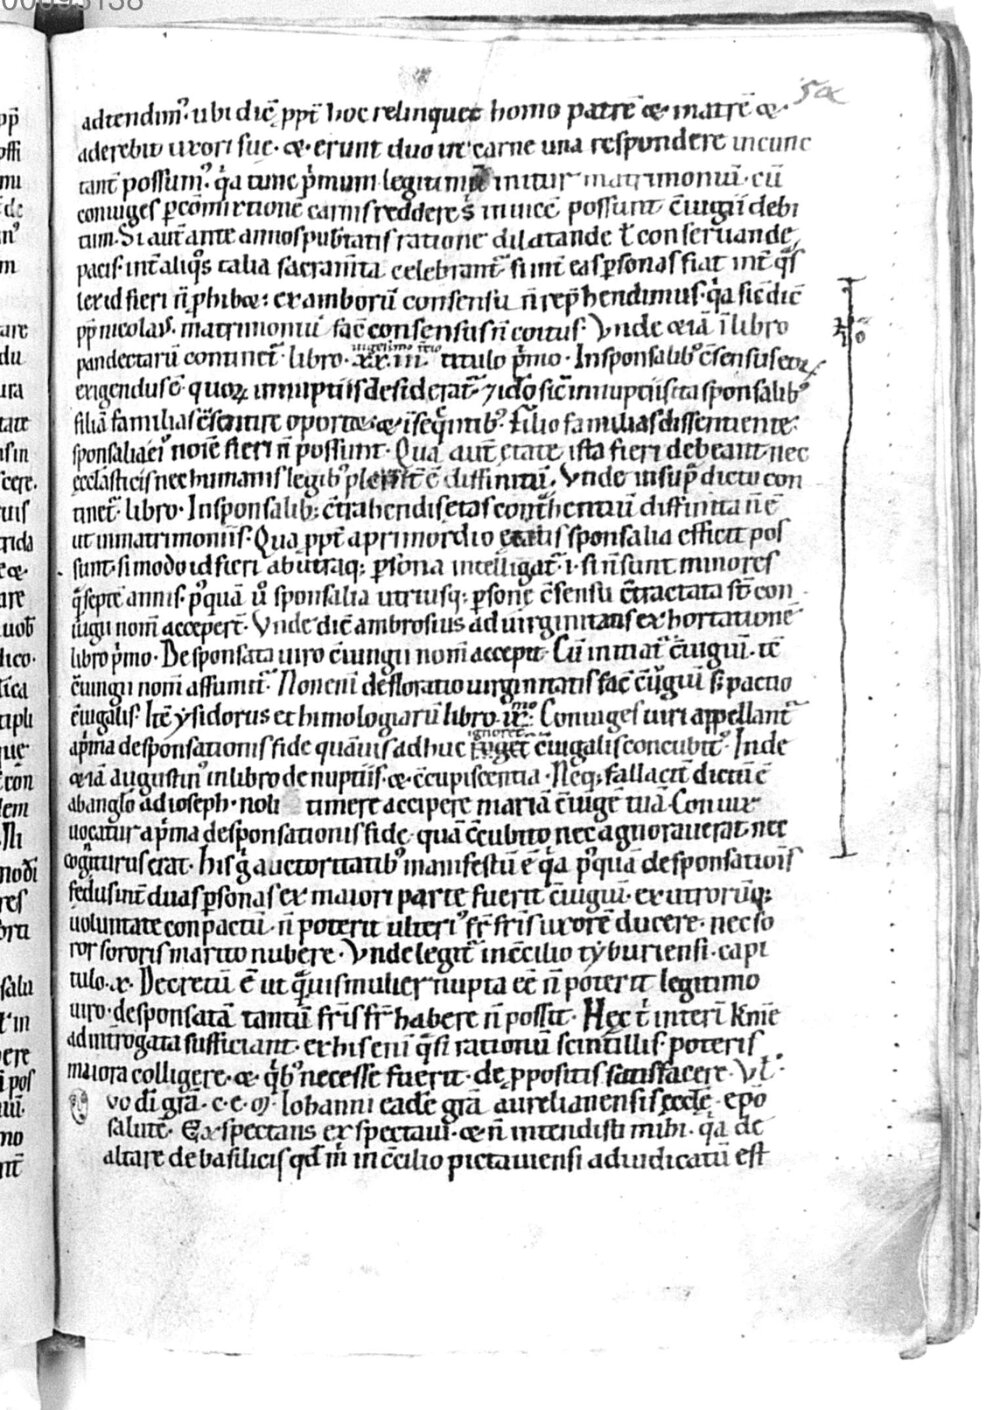 adtendim᷒. ubi dic̄ ꝓpt̄ hoc relinquet homo patrē ⁊ matrē ⁊
aderebit uxori sue. ⁊ erunt duo in carne una respondere incunc
tant̄ possum᷒. q̇a tunc ṗmum legitimū initur matrimoniū. cū
coniuges ꝑ cōmixtionē carnis reddere s̄ inuicē possunt c̄iugii debi
tum. Si aut̄ ante annos pub̄tatis ratione dilatande ł conseruande
pacis. int̄ aliq̇s talia sacram̄ta celebrant᷑. si int̄ eas ꝑsonas fiat int̄ q̇s
lex id fieri n̄ ꝓhibet: ex amborū consensu n̄ rep̄hendimus. q̇a sic̄ dic̄
pp̄ nicolaus. matrimoniū fac̄ consensus n̄ coitus. Vnde ⁊iā ī libro
pandectarū continet᷑ libro. xx.iii. titulo ṗmo. In sponsalib᷒ c̄sensus eoꝝ
exigendus ē. quoꝝ in nuptiis desiderat᷑. ⁊ idō sic̄ in nuptiis ita sponsalib᷒
filiā familias c̄sentire oportet. ⁊ ī seq̄ntib᷒. Filio familias dissentiente
sponsalia ei᷒ noīe fieri n̄ possunt. Qua aut̄ ętate ista fieri debeant. nec
ęcclāsticis nec humanis legib᷒ ē diffinitū. Vnde in sup̄dicto con
tinet᷑ libro. In sponsalib; c̄trahendis etas diffinita n̄ ē
ut in matrimoniis. Qua ꝓpt̄ a primordio ętatis sponsalia effici pos
sunt. si modo id fieri ab utraq; ꝑsona intelligat᷑. i. si n̄ sunt minores
q̇̄ septē annis. p᷒quā ů sponsalia utriusq; ꝑsonę c̄sensu c̄tractata st̄ con
iugii nom̄ acceper̄t. Vnde dic̄ ambrosius ad uirginitatis exhortatione
libro ṗmo. Desponsata uiro c̄iungii nom̄ accepit. Cū initiat᷑ c̄iugiū. tc̄
c̄iungii nom̄ assumit᷑. Non eni᷑ defloratio uirginitatis fac̄ c̄iugiū s; pactio
c̄iugalis. Itē ysidorus ethimologiarū libro. Coniuges uiri appellant᷑
a ṗma desponsationis fide quāuis adhuc ignoret᷑ c̄iugalis concubit᷒. Inde
⁊iā augustin᷒ in libro de nuptiis. ⁊ c̄cupiscentia. Neq; fallacit̄ dictū ē
ab anglo ad ioseph. noli timere accipere mariā c̄iugē tuā. Coniux
uocatur a ṗma desponsationis fide. quā c̄cubitu nec agnouerat. nec
cogn̄iturus erat. His g̊ auctoritatib᷒ manifestū ē q̇a p᷒quā desponsatiōis
fędus int̄ duas ꝑsonas ex maiori parte fuerit c̄iugiū. ex utrorūq;
uoluntate conpactū. n̄ poterit ulteri᷒ fr̄ fr̄is uxorē ducere. nec so
ror sororis marito nubere. Vnde legit᷑ in c̄cilio tyburiensi. capi
tulo .x. Decretū ē ut q̄uis mulier nupta eē n̄ poterit legitimo
uiro. desponsatā tantū fr̄is fr̄ habere n̄ possit. Hęc t̄ interī
ad int̄rogata sufficiant. ex his eni᷑ q̇si rationū scintillis poteris
maiora colligere. ⁊ q̇b᷒ necesse fuerit. de ꝓpositis satisfacere. Vł.
vo di grā. c. e. m̄. Iohanni eadē grā aurelianensis ęcclę. epo
salutē. Exspectans exspectaui. ⁊ n̄ intendisti mihi. q̇a de
altare de basilicis qd̄ m̄ in c̄cilio pictauiensi adiudicatū est